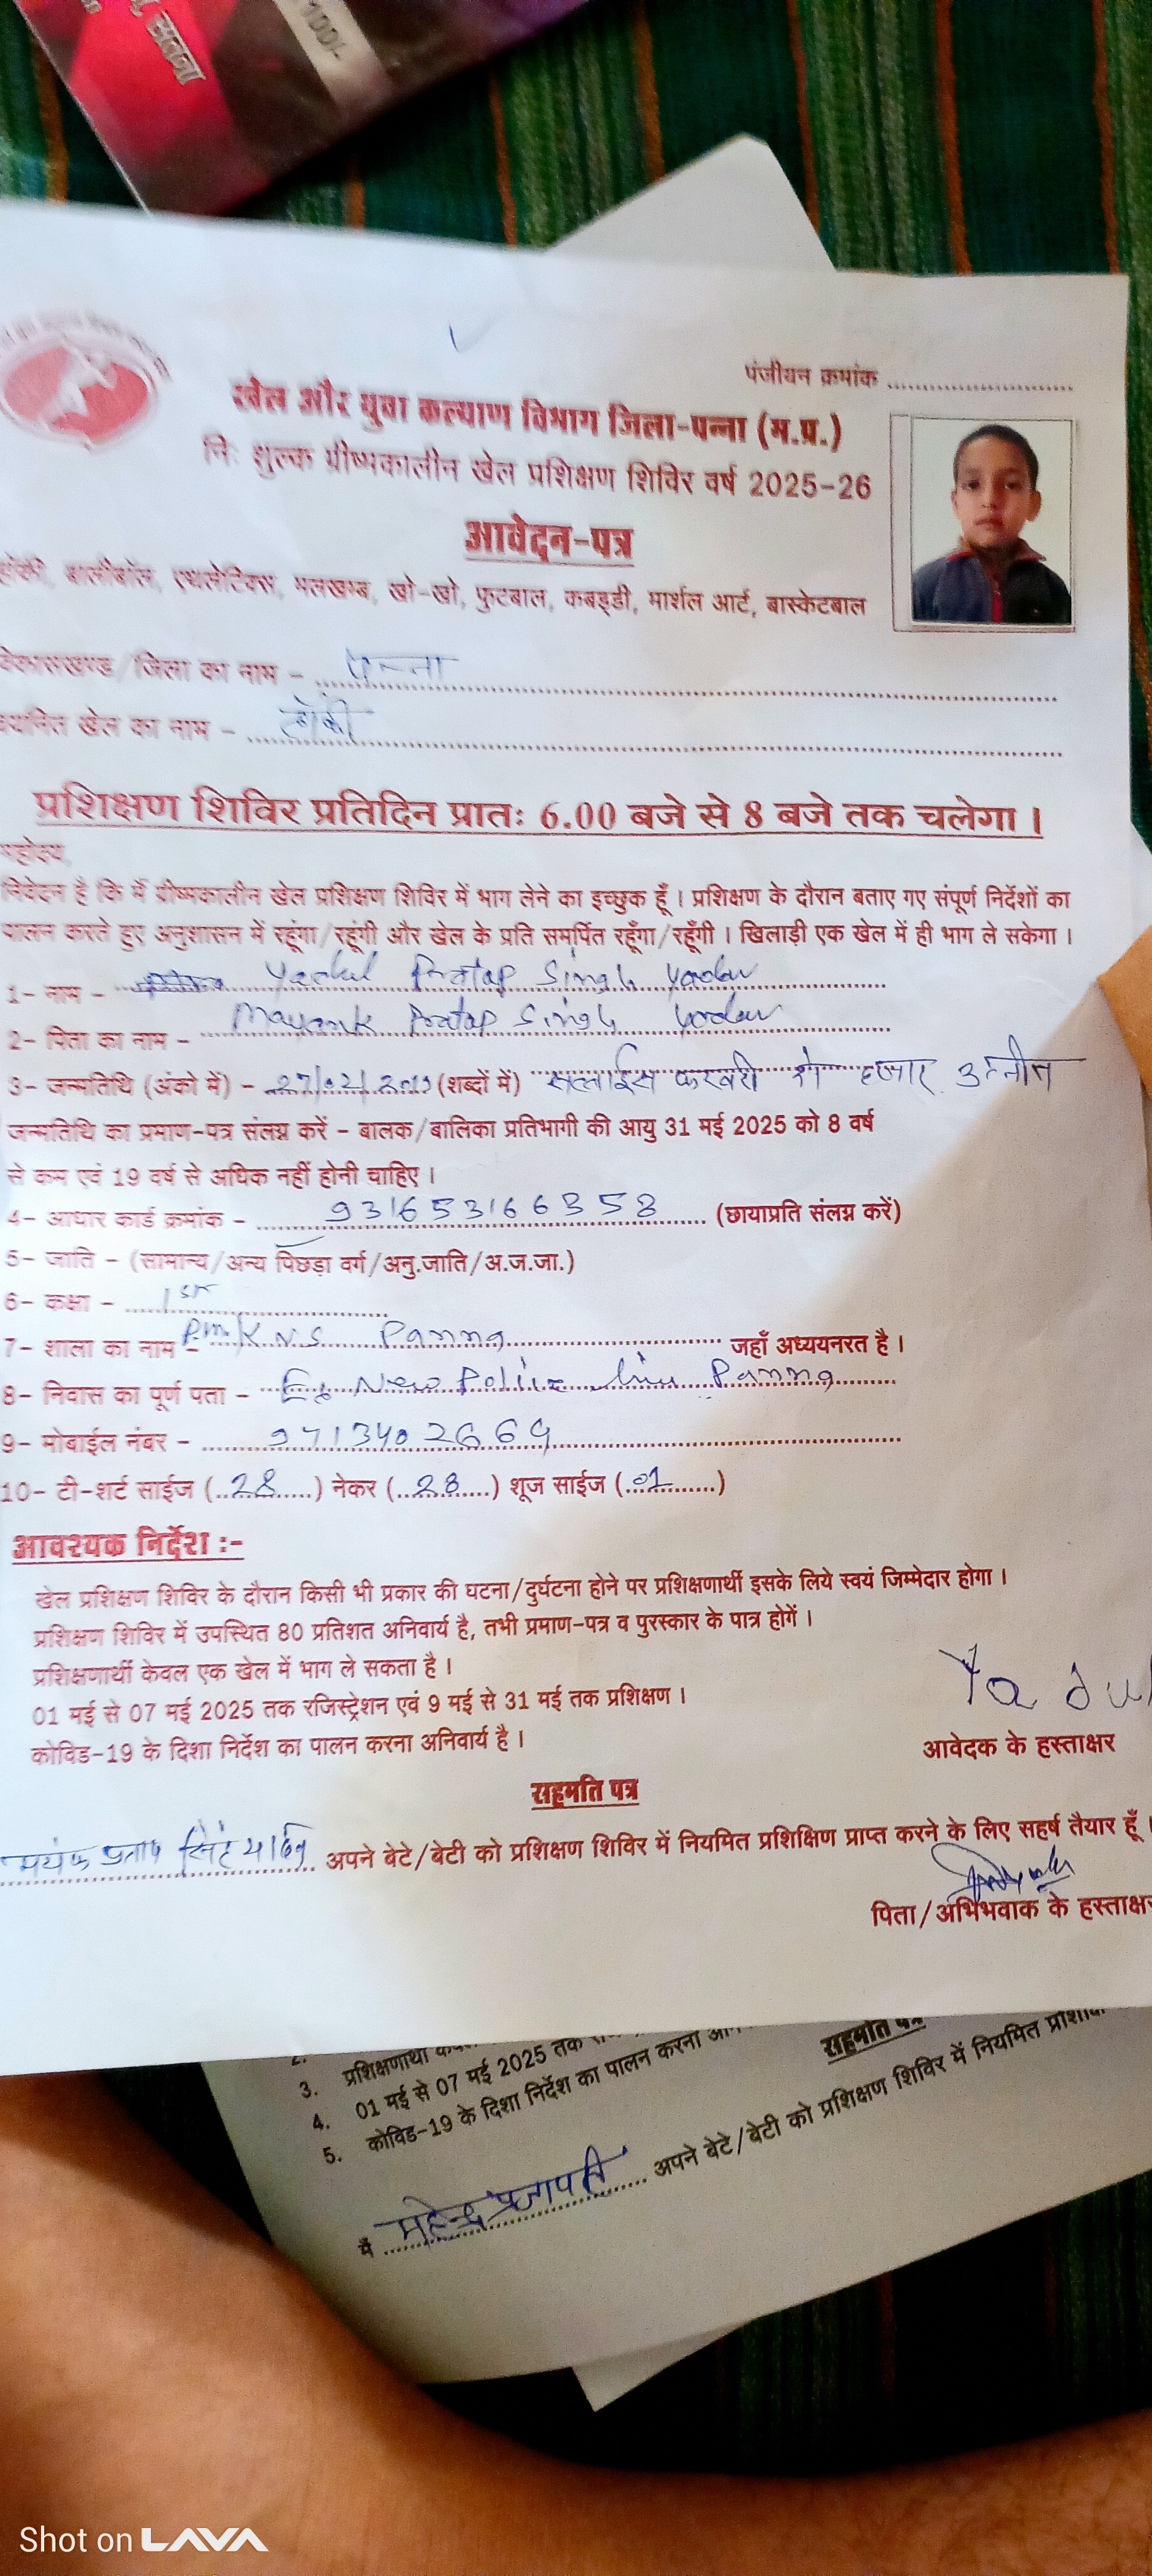 सतना
100/-
पंजीयन क्रमांक
खेल और युवा कल्याण विभाग जिला-पन्ना (म.प्र.)
निः शुल्क ग्रीष्मकालीन खेल प्रशिक्षण शिविर वर्ष 2025-26
आवेदन-पत्र
हॉकी, बालीबॉल, एथलेटिक्स, मलखम्ब, खो-खो, फुटबाल, कबड्डी, मार्शल आर्ट, बास्केटबाल
विकासखण्ड/जिला का नाम - पन्ना
चयनित खेल का नाम - हॉकी
प्रशिक्षण शिविर प्रतिदिन प्रातः 6.00 बजे से 8 बजे तक चलेगा ।
महोदय,
निवेदन है कि मैं ग्रीष्मकालीन खेल प्रशिक्षण शिविर में भाग लेने का इच्छुक हूँ । प्रशिक्षण के दौरान बताए गए संपूर्ण निर्देशों का
पालन करते हुए अनुशासन में रहूंगा/रहूंगी और खेल के प्रति समर्पित रहूँगा/रहूँगी । खिलाड़ी एक खेल में ही भाग ले सकेगा ।
1- नाम - Pratap Singh Yadav
2- पिता का नाम - Mayank Pratap Singh Yadav
3- जन्मतिथि (अंको में) - 27/02/2019 (शब्दों में) सत्ताईस फरवरी दो हजार उन्नीस
जन्मतिथि का प्रमाण-पत्र संलग्न करें - बालक/बालिका प्रतिभागी की आयु 31 मई 2025 को 8 वर्ष
से कम एवं 19 वर्ष से अधिक नहीं होनी चाहिए ।
4- आधार कार्ड क्रमांक - 931653166358 (छायाप्रति संलग्न करें)
5- जाति - (सामान्य/अन्य पिछड़ा वर्ग/अनु.जाति/अ.ज.जा.)
6- कक्षा - 1st
7- शाला का नाम - Panna जहाँ अध्ययनरत है ।
8- निवास का पूर्ण पता - New Police line Panna
9- मोबाईल नंबर - 9713402669
10- टी-शर्ट साईज (28) नेकर (28) शूज साईज (01)
आवश्यक निर्देश :-
खेल प्रशिक्षण शिविर के दौरान किसी भी प्रकार की घटना/दुर्घटना होने पर प्रशिक्षणार्थी इसके लिये स्वयं जिम्मेदार होगा ।
प्रशिक्षण शिविर में उपस्थित 80 प्रतिशत अनिवार्य है, तभी प्रमाण-पत्र व पुरस्कार के पात्र होगें ।
प्रशिक्षणार्थी केवल एक खेल में भाग ले सकता है ।
01 मई से 07 मई 2025 तक रजिस्ट्रेशन एवं 9 मई से 31 मई तक प्रशिक्षण ।
कोविड-19 के दिशा निर्देश का पालन करना अनिवार्य है ।
आवेदक के हस्ताक्षर
सहमति पत्र
मयंक प्रताप सिंह यादव अपने बेटे/बेटी को प्रशिक्षण शिविर में नियमित प्रशिक्षिण प्राप्त करने के लिए सहर्ष तैयार हूँ ।
पिता/अभिभवाक के हस्ताक्षर
2.
3. प्रशिक्षणार्थी
4. 01 मई से 07 मई 2025 तक
5. कोविड-19 के दिशा निर्देश का पालन करना
सहमति पत्र
मैं महेन्द्र प्रजापति अपने बेटे/बेटी को प्रशिक्षण शिविर में नियमित
Shot on LAVA